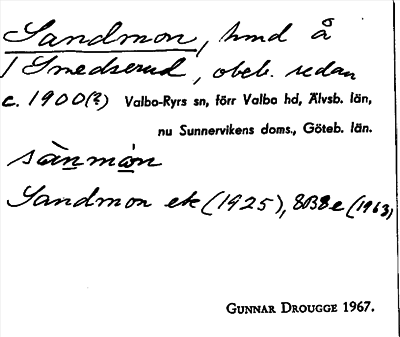 Sandmon, hmd å
1 Smedserud, obeb. sedan
c. 1900(?) Valbo-Ryrs sn, förr Valbo hd, Älvsb. län,
nu Sunnervikens doms., Göteb. län.
sànmón
Sandmon ek (1925), 8B8e (1963)
GUNNAR DROUGGE 1967.